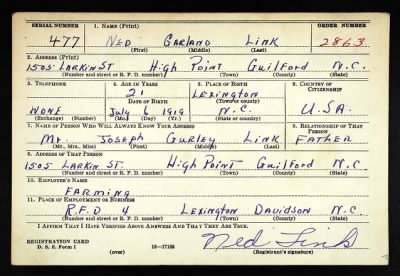 SERIAL NUMBER 1. NAME (Print) ORDER NUMBER
477 NED GARLAND LINK 2863
(First) (Middle) (Last)
2. ADDRESS (Print)
1505 LARKIN ST High Point Guilford N.C.
(Number and street or R. F. D. number) (Town) (County) (State)
3. TELEPHONE 4. AGE IN YEARS 5. PLACE OF BIRTH 6. COUNTRY OF CITIZENSHIP
21 Lexington
DATE OF BIRTH (Town or county)
NONE July 6 1919 N.C. U.S.A.
(Exchange) (Number) (Mo.) (Day) (Yr.) (State or country)
7. NAME OF PERSON WHO WILL ALWAYS KNOW YOUR ADDRESS 8. RELATIONSHIP OF THAT PERSON
Mr. JOSEPH GURLEY LINK FATHER
(Mr., Mrs., Miss) (First) (Middle) (Last)
9. ADDRESS OF THAT PERSON
1505 LARKIN ST. High Point Guilford N.C.
(Number and street or R. F. D. number) (Town) (County) (State)
10. EMPLOYER'S NAME
FARMING
11. PLACE OF EMPLOYMENT OR BUSINESS
R.F.D 4 Lexington Davidson N.C.
(Number and street or R. F. D. number) (Town) (County) (State)
I AFFIRM THAT I HAVE VERIFIED ABOVE ANSWERS AND THAT THEY ARE TRUE.
REGISTRATION CARD
D. S. S. Form 1 16-17105 Ned Link
(over) (Registrant's signature)